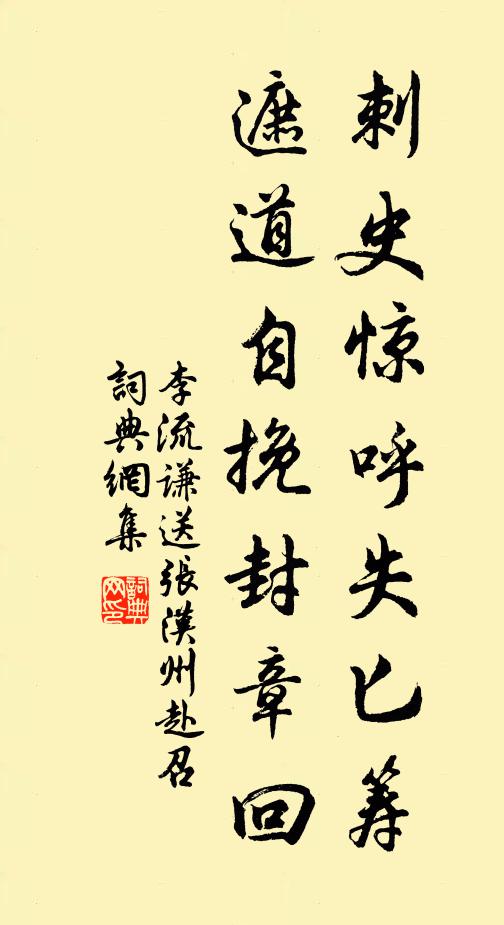 刺史惊呼失匕筹
遮道自挽封章回
李流谦送張漢州赴召
詞典網集
詞典網印